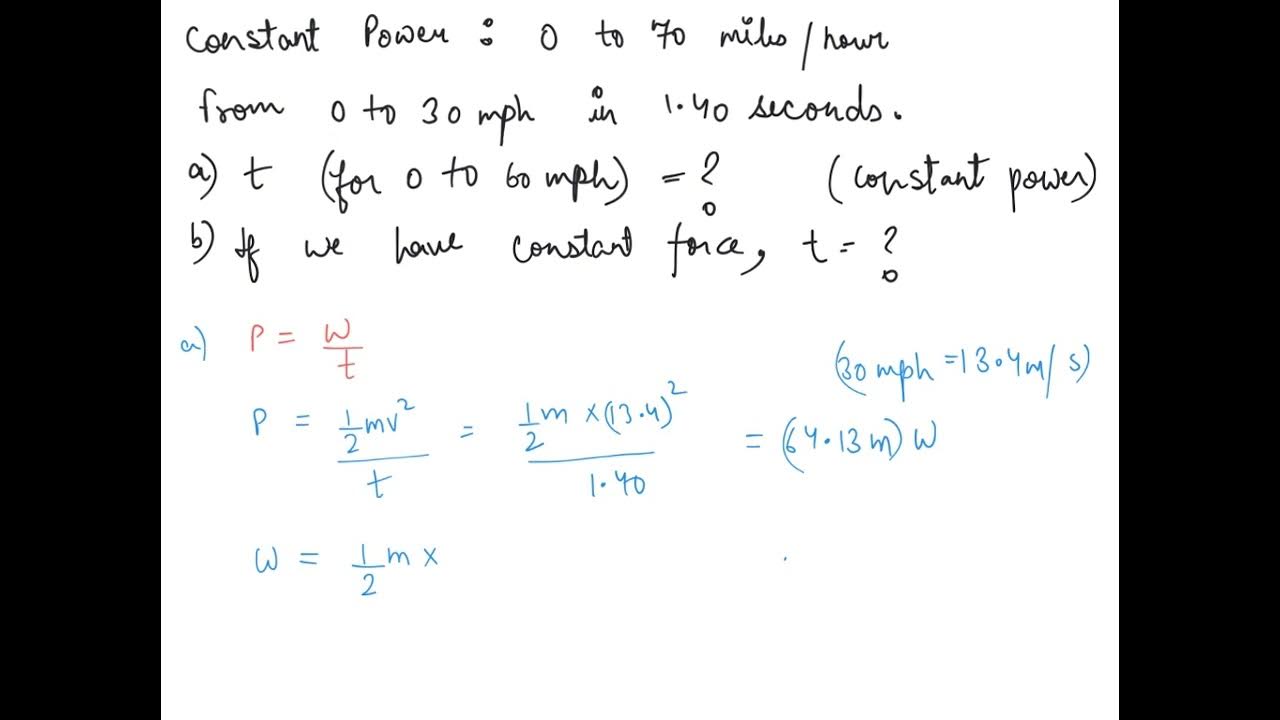 Constant Power : 0 to 70 miles/hour
from 0 to 30 mph in 1.40 seconds.
a) t (for 0 to 60 mph) = ? (constant power)
b) If we have constant force, t = ?
a) P = W/t
(30 mph = 13.4 m/s)
P = 1/2 mv² / t = 1/2 m × (13.4)² / 1.40 = (64.13 m) W
W = 1/2 m ×